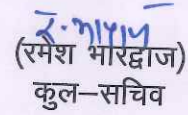 (रमेश भारद्वाज)
कुल–सचिव